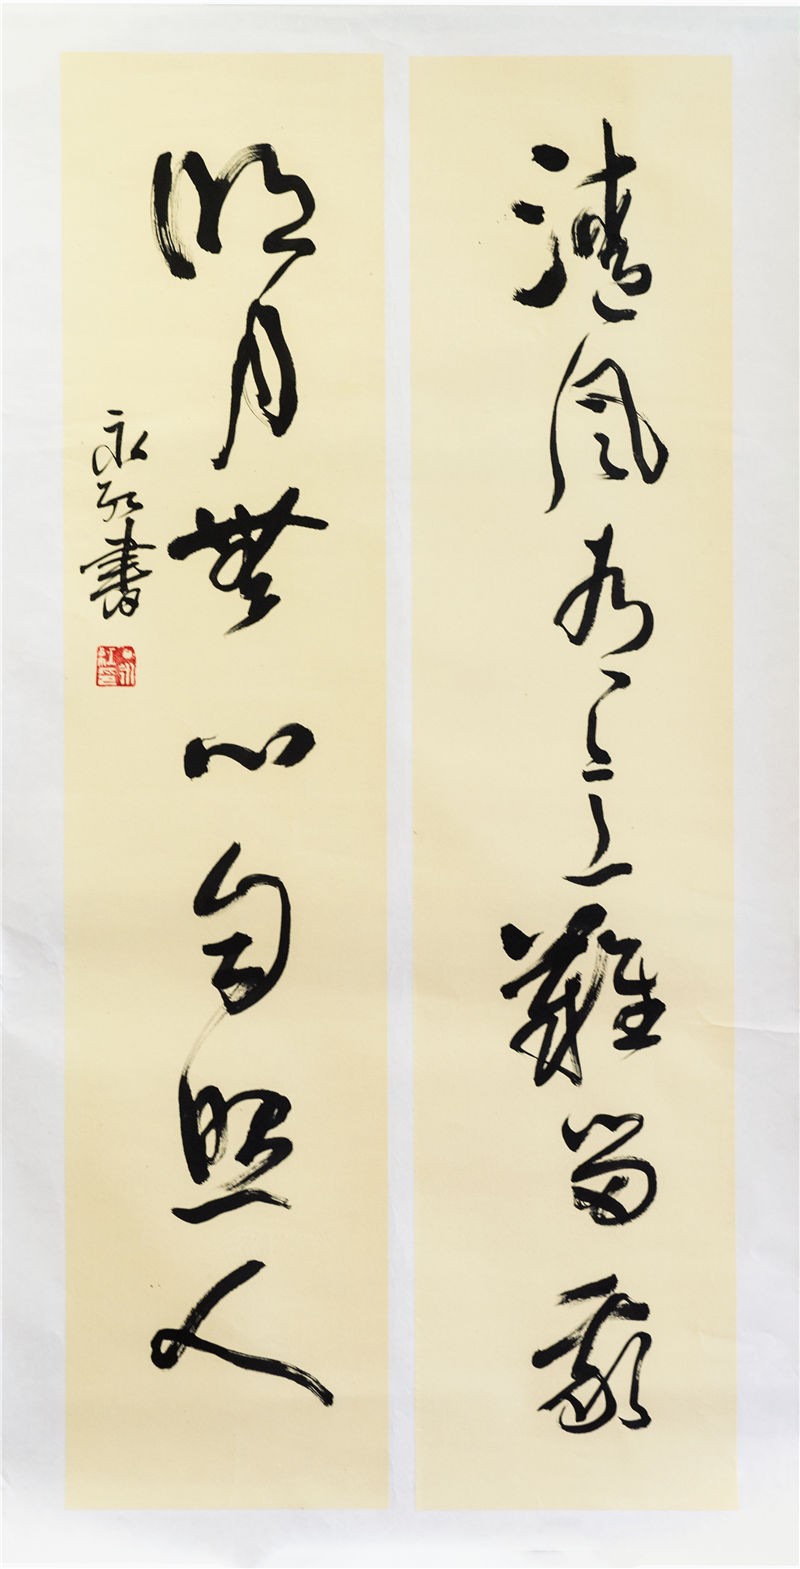 清風有意難留我
明月無心自照人
永红書